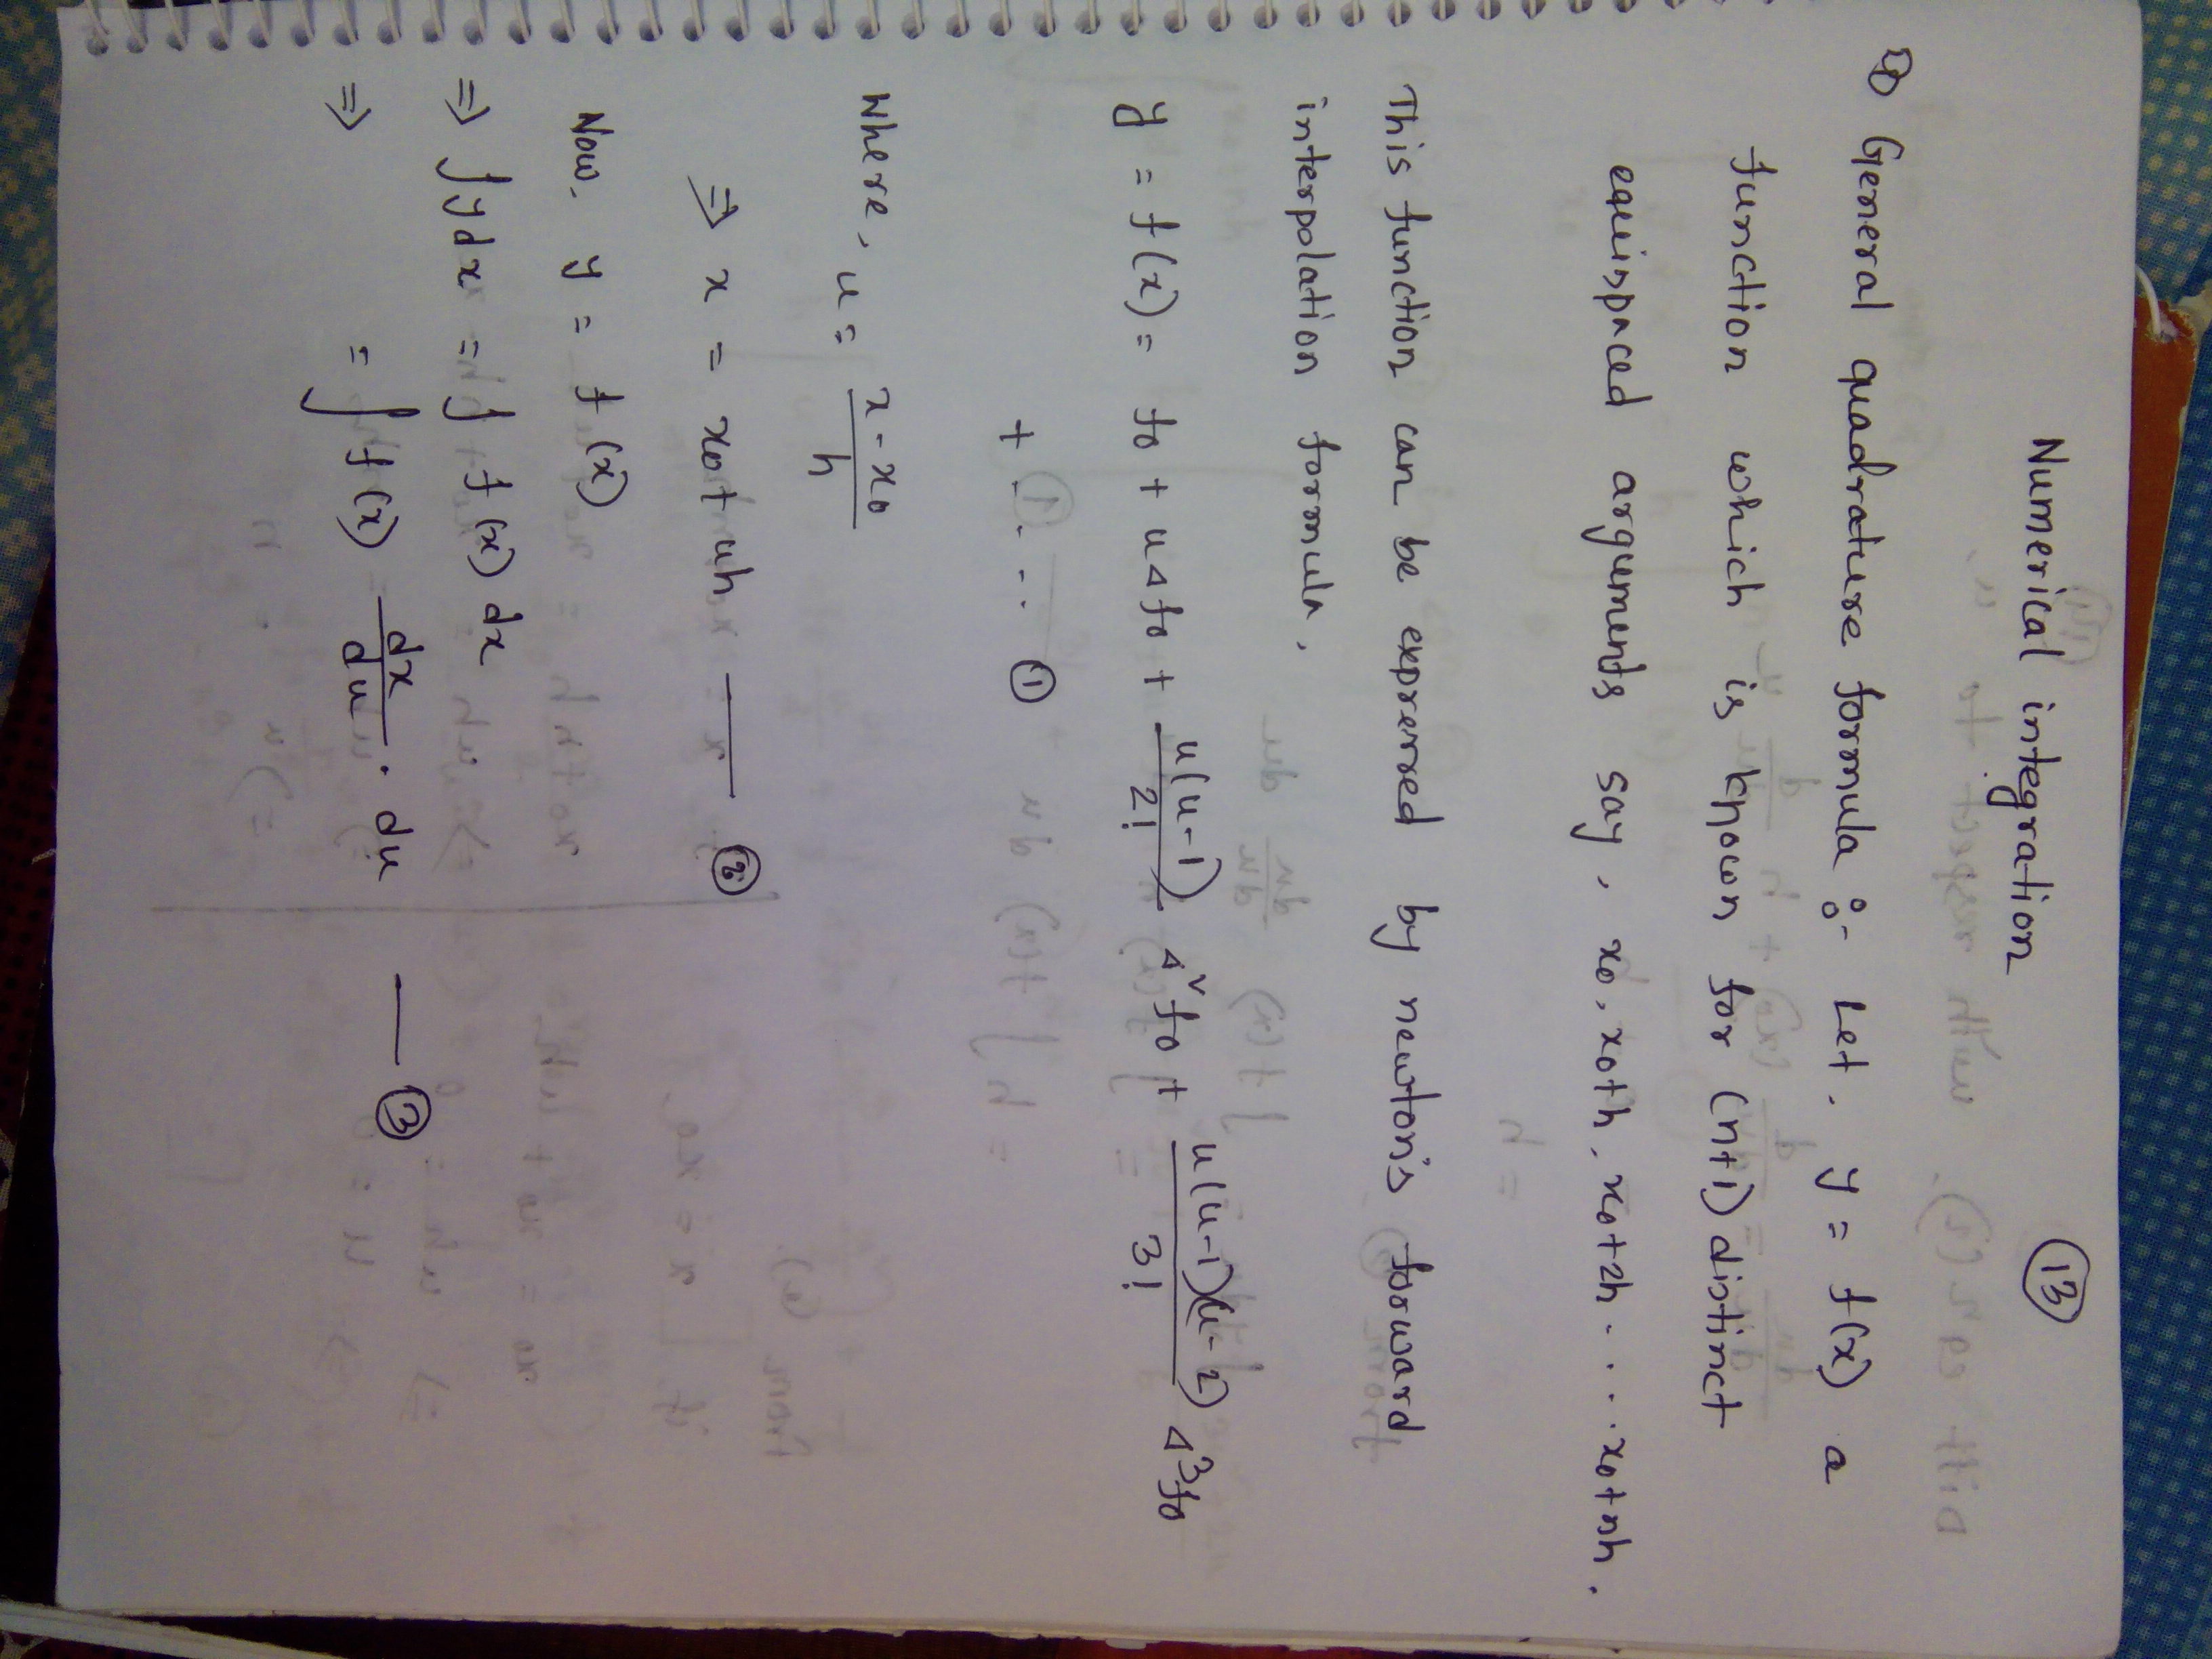 Numerical integration (13)
⇒ General quadrature formula :- Let, y = f(x) a
function which is known for (n+1) distinct
equispaced arguments say, x₀, x₀+h, x₀+2h ... x₀+nh.
This function can be expressed by newton's forward
interpolation formula,
y = f(x) = f₀ + uΔf₀ + u(u-1)/2! Δ²f₀ + u(u-1)(u-2)/3! Δ³f₀
+ - . - . . (1)
Where, u = (x - x₀)/h
⇒ x = x₀ + uh — (2)
Now, y = f(x)
⇒ ∫ y dx = ∫ f(x) dx
⇒ = ∫ f(x) dx/du . du — (3)